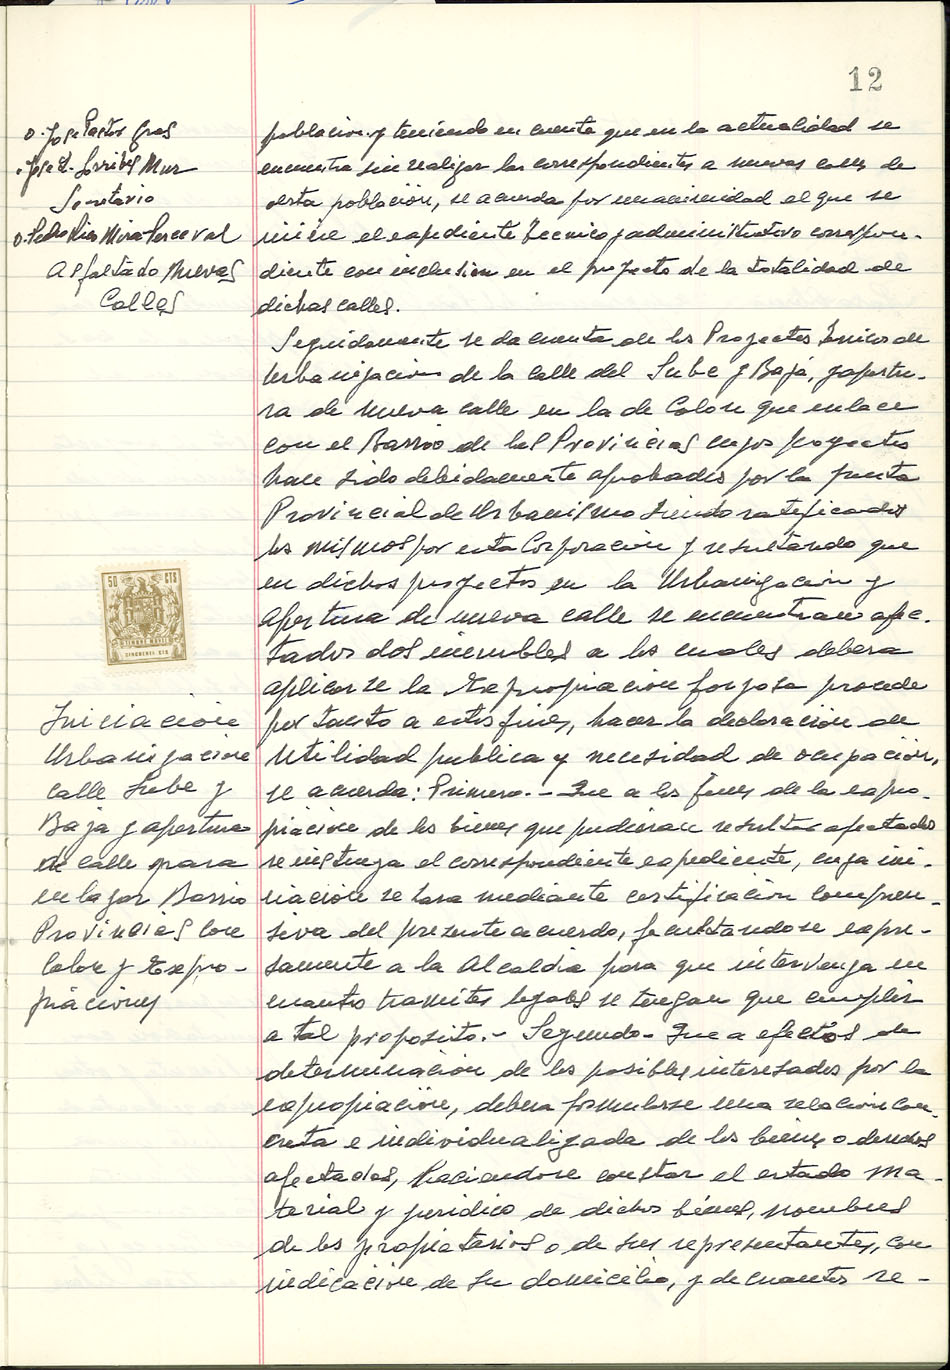 12
D. Jose Pastor Gras
D. Jose E. Sorribes Mur
Secretario
D. Pedro Rico Mira Perceval
Asfaltado Nuevas
Calles
50 CTS
TIMBRE MOVIL
CINCUENTA CTS
Iniciacion
Urbanizacion
calle Sube y
Baja y apertura
de calle para
enlazar Barrio
Provincias con
Colon y Expro-
piaciones
poblacion y teniendo en cuenta que en la actualidad se
encuentra sin realizar las correspondientes a nuevas calles de
esta población, se acuerda por unanimidad el que se
inicie el expediente tecnico y administrativo correspon-
diente con inclusion en el proyecto de la totalidad de
dichas calles.
Seguidamente se da cuenta de los Proyectos tecnicos de
Urbanizacion de la calle del Sube y Baja, y apertu-
ra de nueva calle en la de Colon que enlace
con el Barrio de las Provincias cuyos proyectos
han sido debidamente aprobados por la Junta
Provincial de Urbanismo siendo ratificados
los mismos por esta Corporacion y resultando que
en dichos proyectos en la Urbanizacion y
apertura de nueva calle se encuentran afec-
tados dos inmuebles a los cuales debera
aplicarse la Expropiacion forzosa procede
por tanto a estos fines, hacer la declaración de
Utilidad publica y necesidad de ocupación,
se acuerda: Primero.- Que a los fines de la expro-
piacion de los bienes que pudieran resultar afectados
se instruya el correspondiente expediente, cuya ini-
ciacion se hara mediante certificacion compren-
siva del presente acuerdo, facultandose expre-
samente a la Alcaldia para que intervenga en
cuantos tramites legales se tengan que cumplir
a tal proposito.- Segundo.- Que a efectos de
determinación de los posibles interesados por la
expropiación, debera formularse una relacion con-
creta e individualizada de los bienes o derechos
afectados, haciendose constar el estado ma-
terial y juridico de dichos bienes, nombres
de los propietarios o de sus representantes, con
indicación de su domicilio, y de cuantos re-